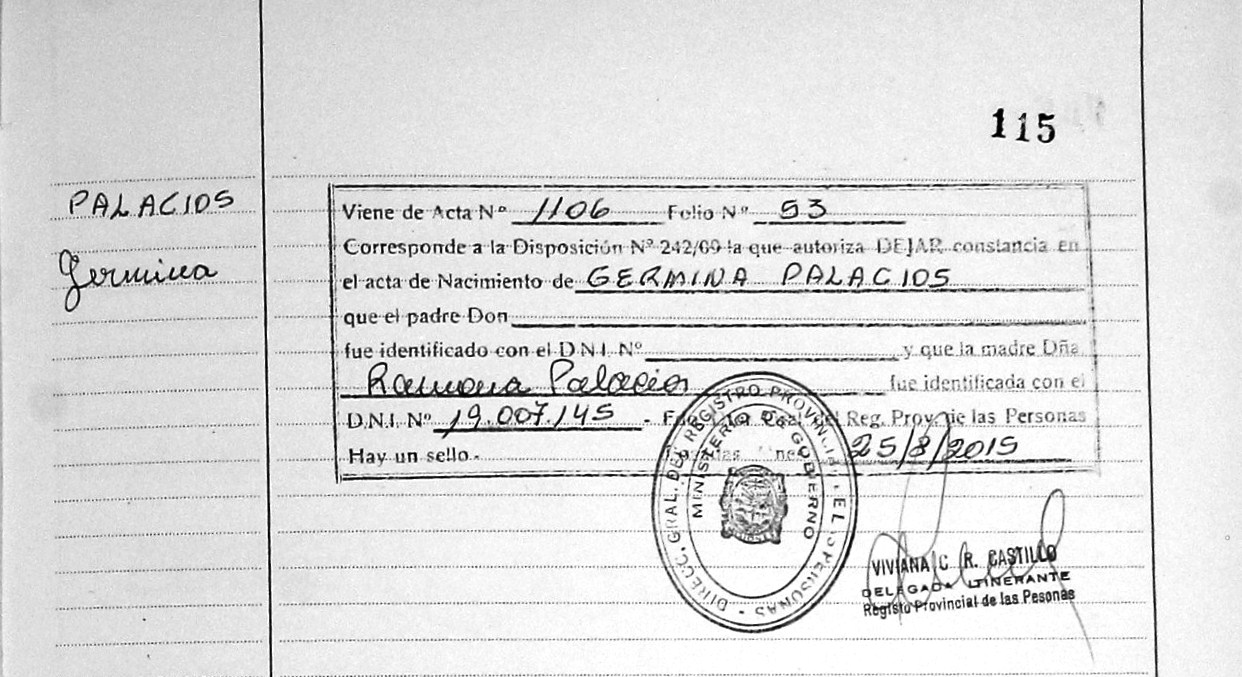 115
PALACIOS
Germina
Viene de Acta Nº 1106 Folio Nº 53
Corresponde a la Disposición Nº 242/09 la que autoriza DEJAR constancia en
el acta de Nacimiento de GERMINA PALACIOS
que el padre Don
fue identificado con el D.N.I. Nº y que la madre Dña.
Ramona Palacios fue identificada con el
D.N.I. Nº 19.007.145 - Reg. Prov. de las Personas
Hay un sello.- 25/8/2015
DIRECC. GRAL. DEL REGISTRO PROVINCIAL DE LAS PERSONAS
MINISTERIO DE GOBIERNO
VIVIANA C. R. CASTILLO
DELEGADA ITINERANTE
Registo Provincial de las Pesonas